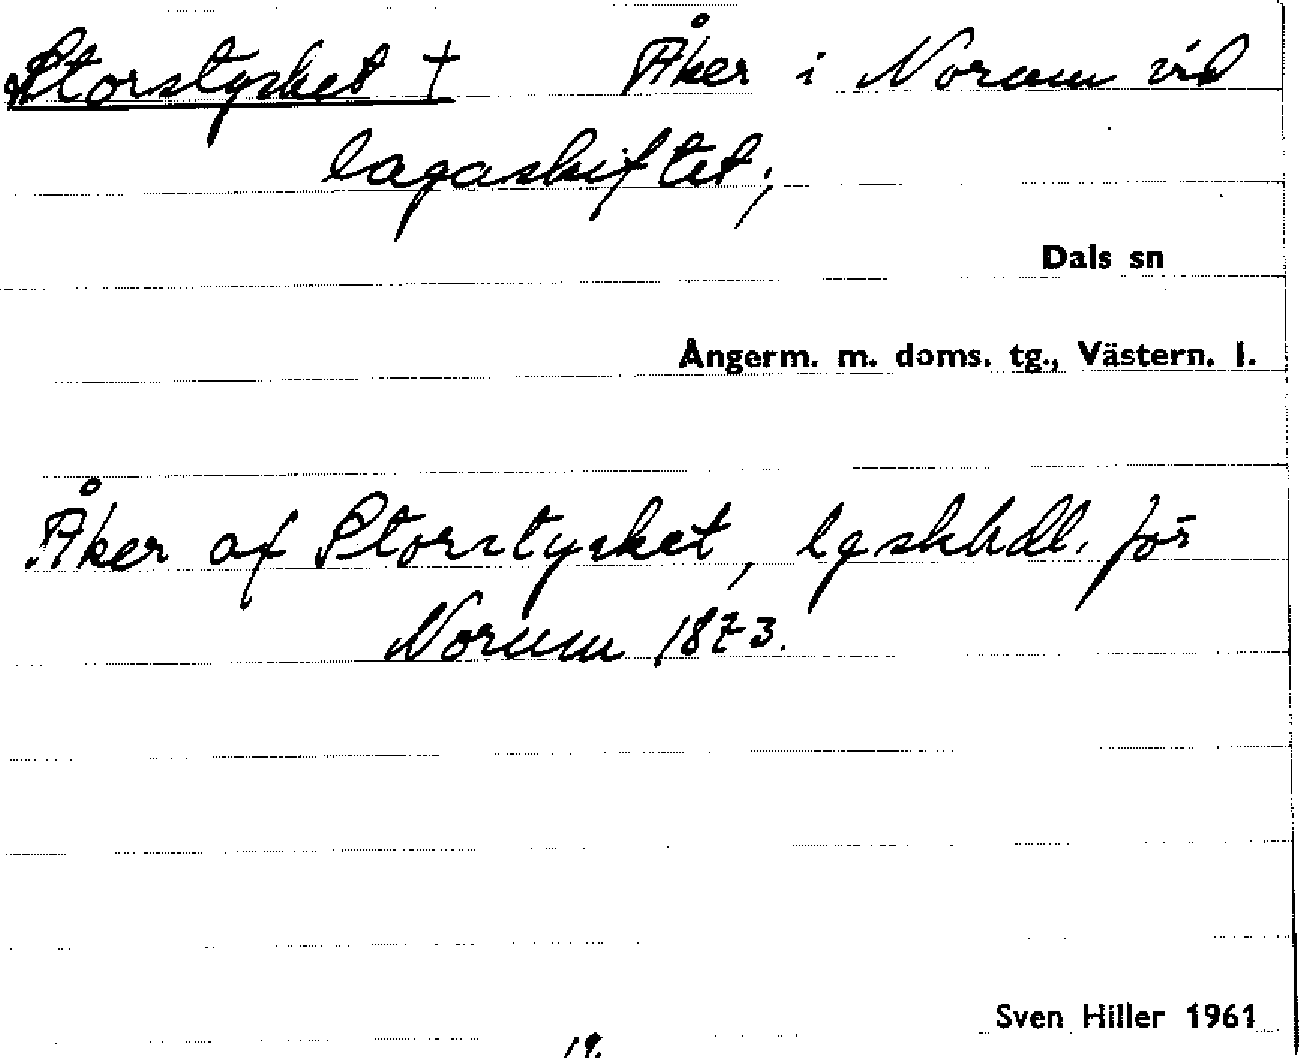 Storstycket † Åker i Norum vid
lagaskiftet;
Dals sn
Ångerm. m. doms. tg., Västern. l.
Åker af Storstycket, lgskhdl. för
Norum 1873.
Sven Hiller 1961